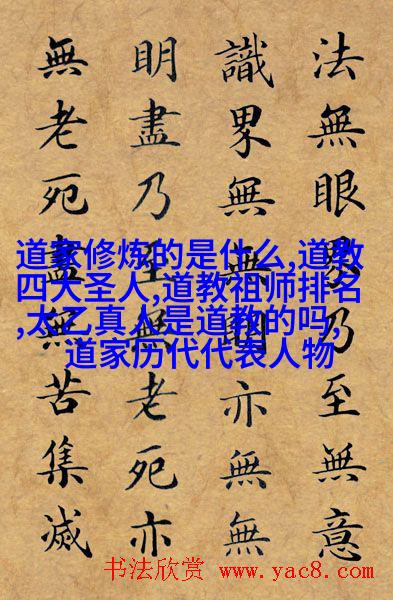 法無眼界乃至無意
識界無無明亦無無
明盡乃至無老死亦
無老死盡無苦集滅
道家修炼的是什么,道教
四大圣人,道教祖师排名
,太乙真人是道教的吗
道家历代代表人物
书法欣赏 www.yac8.com